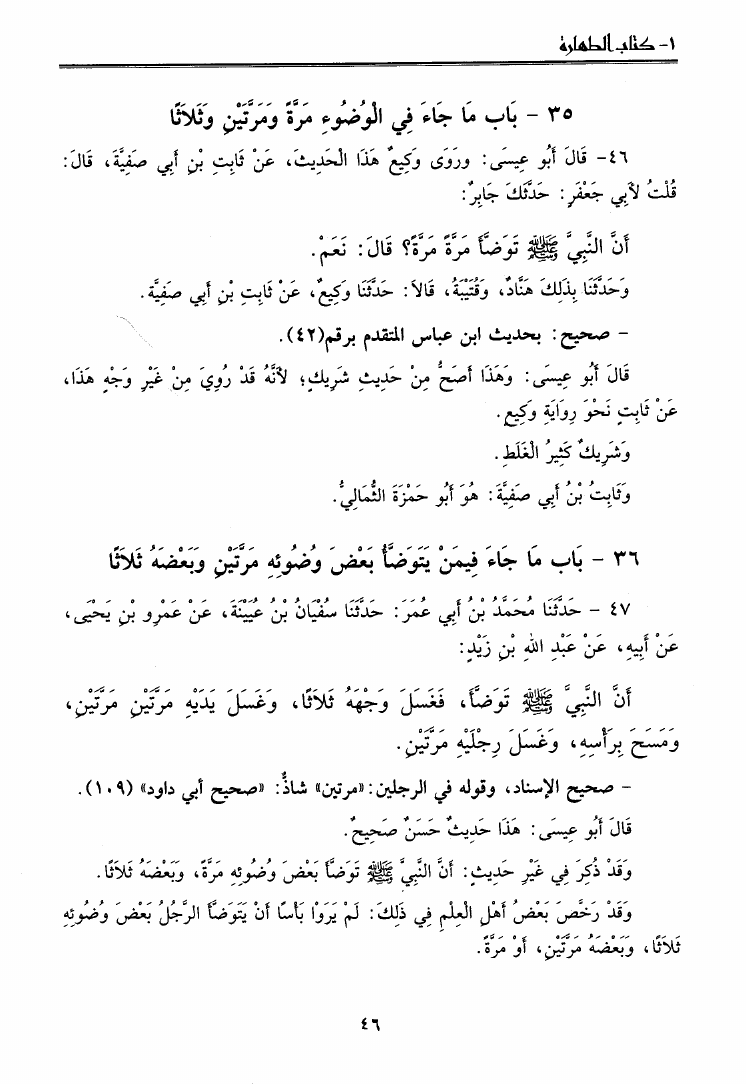 ١- كتاب الطهارة
٣٥ - بَاب مَا جَاءَ فِي الْوُضُوءِ مَرَّةً وَمَرَّتَيْنِ وَثَلَاثًا
٤٦- قَالَ أَبُو عِيسَى: وَرَوَى وَكِيعٌ هَذَا الْحَدِيثَ، عَنْ ثَابِتِ بْنِ أَبِي صَفِيَّةَ، قَالَ:
قُلْتُ لأَبِي جَعْفَرٍ: حَدَّثَكَ جَابِرٌ:
أَنَّ النَّبِيَّ ﷺ تَوَضَّأَ مَرَّةً مَرَّةً؟ قَالَ: نَعَمْ.
وَحَدَّثَنَا بِذَلِكَ هَنَّادٌ، وَقُتَيْبَةُ، قَالاَ: حَدَّثَنَا وَكِيعٌ، عَنْ ثَابِتِ بْنِ أَبِي صَفِيَّةَ.
- صحيح: بحديث ابن عباس المتقدم برقم(٤٢).
قَالَ أَبُو عِيسَى: وَهَذَا أَصَحُّ مِنْ حَدِيثِ شَرِيكٍ؛ لأَنَّهُ قَدْ رُوِيَ مِنْ غَيْرِ وَجْهٍ هَذَا،
عَنْ ثَابِتٍ نَحْوَ رِوَايَةِ وَكِيعٍ.
وَشَرِيكٌ كَثِيرُ الْغَلَطِ.
وَثَابِتُ بْنُ أَبِي صَفِيَّةَ: هُوَ أَبُو حَمْزَةَ الثُّمَالِيُّ.
٣٦ - بَاب مَا جَاءَ فِيمَنْ يَتَوَضَّأُ بَعْضَ وُضُوئِهِ مَرَّتَيْنِ وَبَعْضَهُ ثَلَاثًا
٤٧ - حَدَّثَنَا مُحَمَّدُ بْنُ أَبِي عُمَرَ: حَدَّثَنَا سُفْيَانُ بْنُ عُيَيْنَةَ، عَنْ عَمْرِو بْنِ يَحْيَى،
عَنْ أَبِيهِ، عَنْ عَبْدِ اللهِ بْنِ زَيْدٍ:
أَنَّ النَّبِيَّ ﷺ تَوَضَّأَ، فَغَسَلَ وَجْهَهُ ثَلَاثًا، وَغَسَلَ يَدَيْهِ مَرَّتَيْنِ مَرَّتَيْنِ،
وَمَسَحَ بِرَأْسِهِ، وَغَسَلَ رِجْلَيْهِ مَرَّتَيْنِ.
- صحيح الإسناد، وقوله في الرجلين: «مرتين» شاذٌّ: «صحيح أبي داود» (١٠٩).
قَالَ أَبُو عِيسَى: هَذَا حَدِيثٌ حَسَنٌ صَحِيحٌ.
وَقَدْ ذُكِرَ فِي غَيْرِ حَدِيثٍ: أَنَّ النَّبِيَّ ﷺ تَوَضَّأَ بَعْضَ وُضُوئِهِ مَرَّةً، وَبَعْضَهُ ثَلَاثًا.
وَقَدْ رَخَّصَ بَعْضُ أَهْلِ الْعِلْمِ فِي ذَلِكَ: لَمْ يَرَوْا بَأْسًا أَنْ يَتَوَضَّأَ الرَّجُلُ بَعْضَ وُضُوئِهِ
ثَلَاثًا، وَبَعْضَهُ مَرَّتَيْنِ، أَوْ مَرَّةً.
٤٦